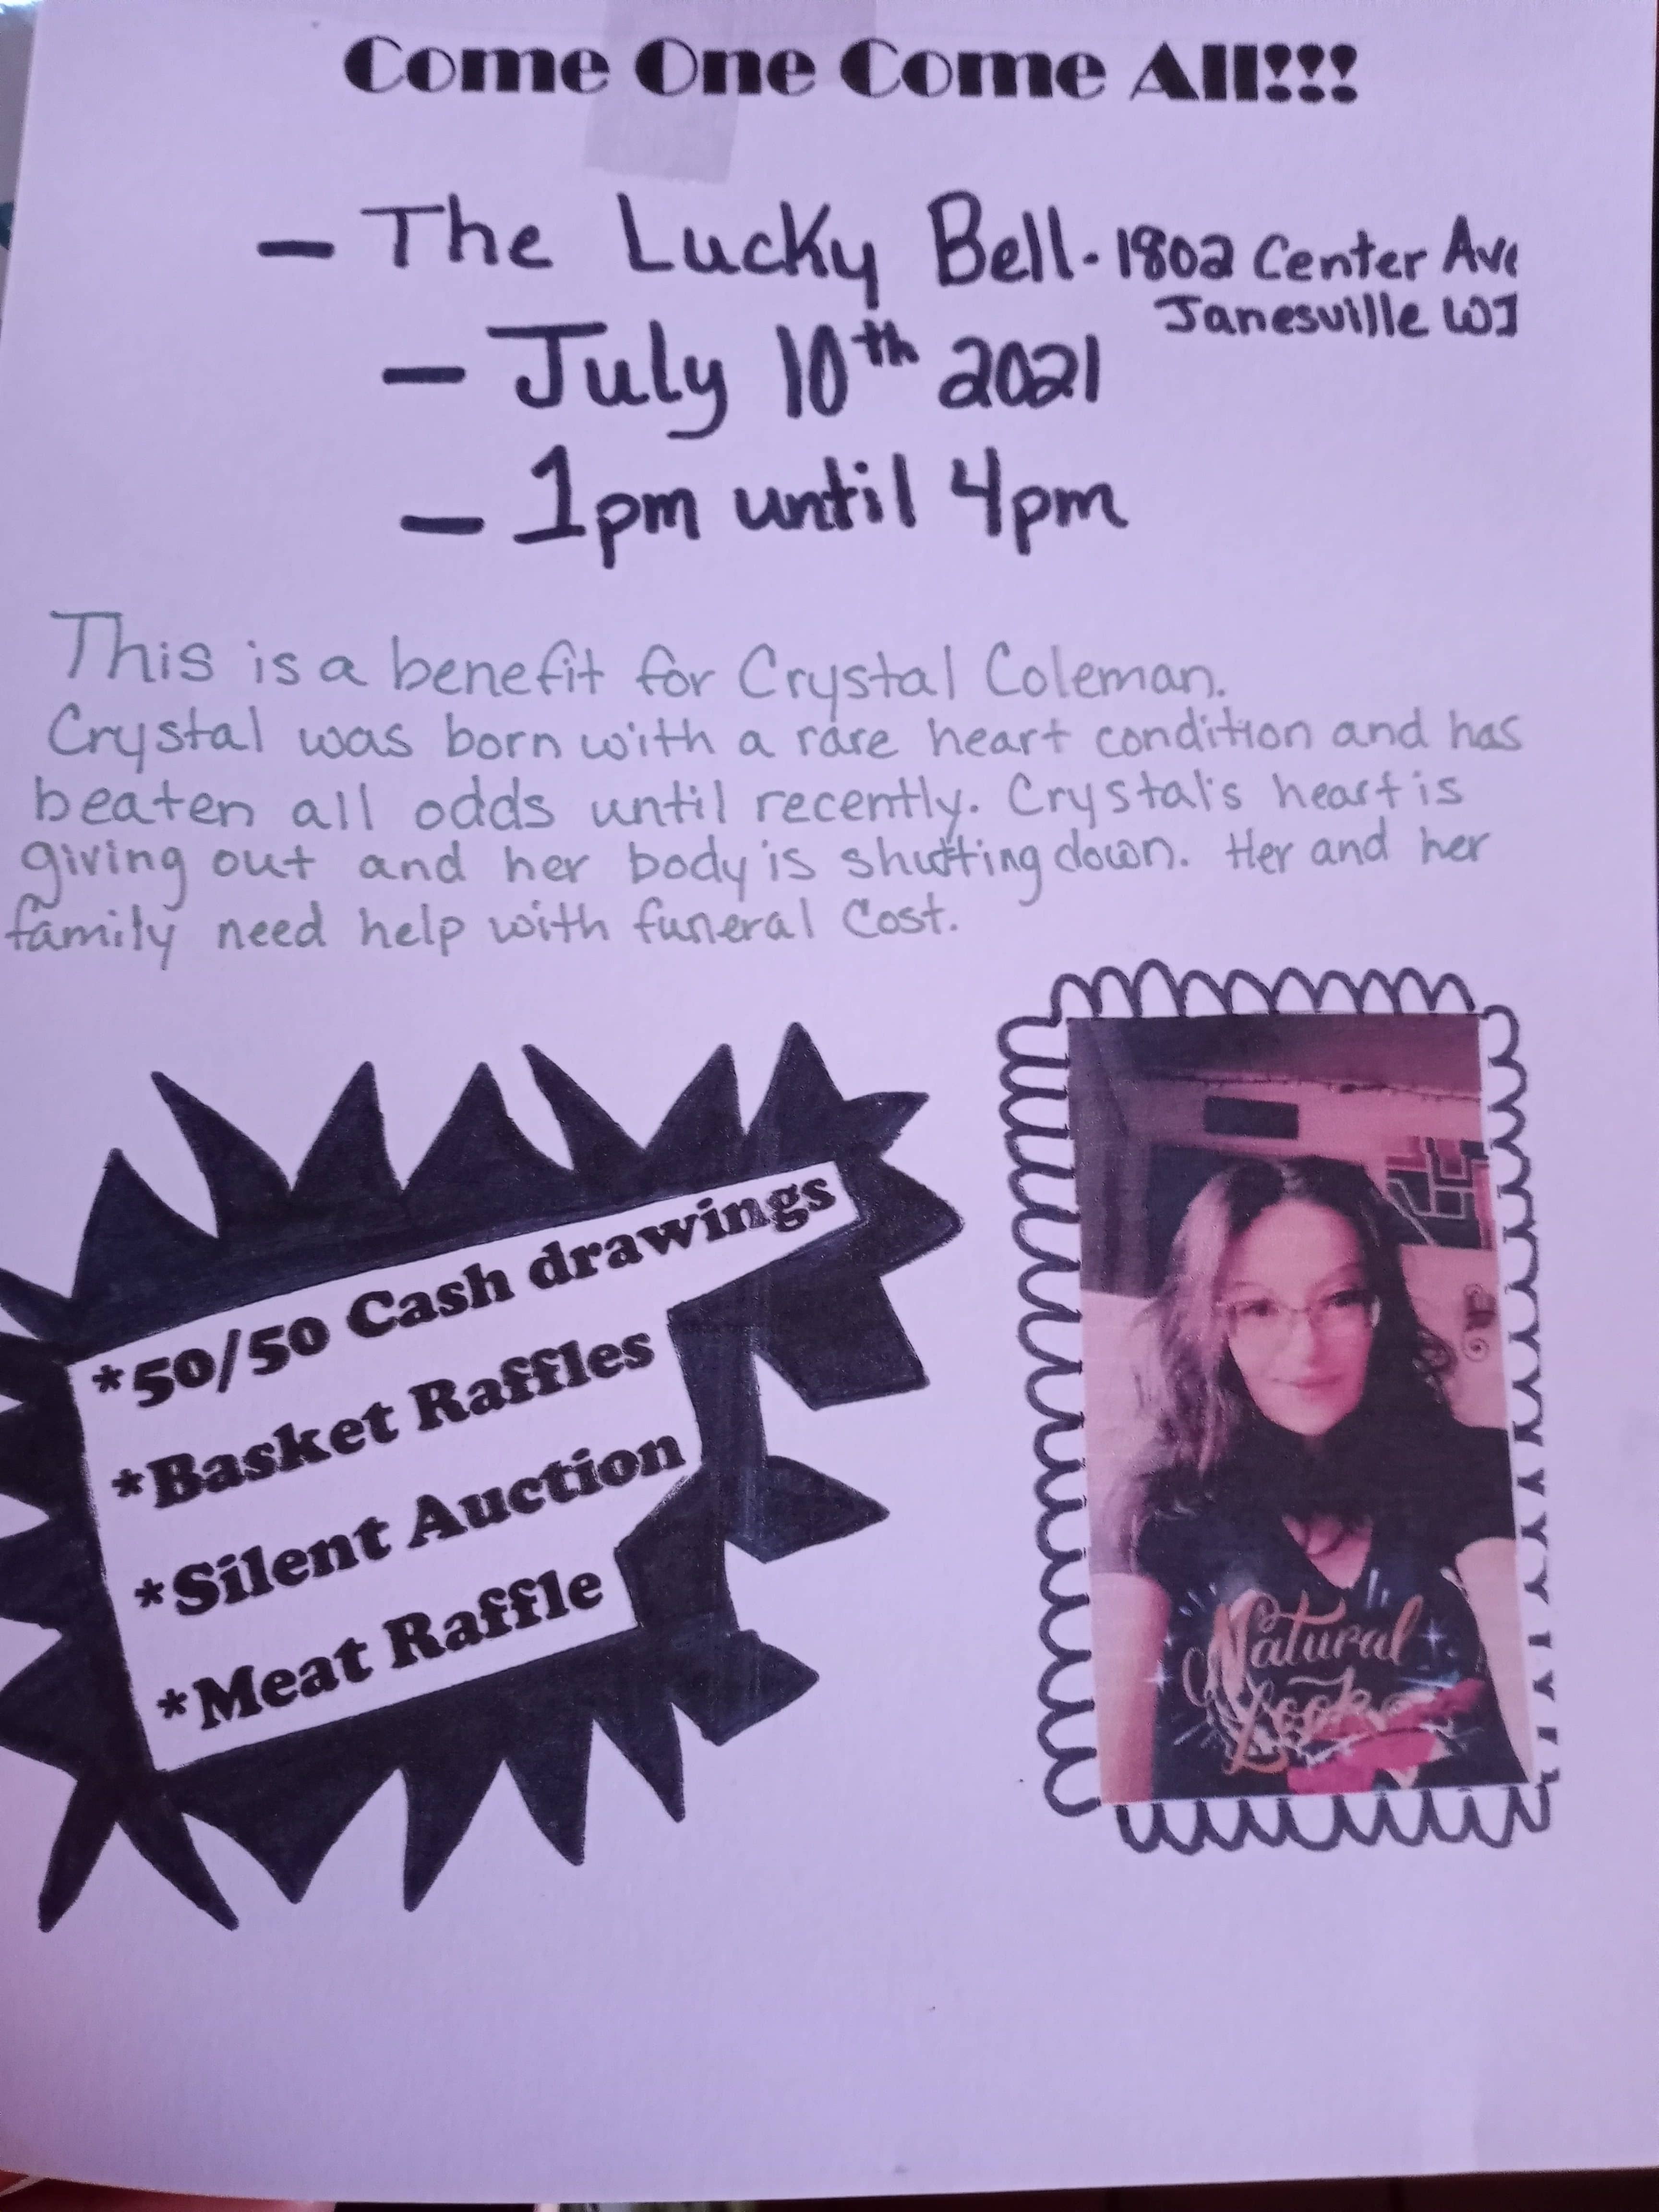 Come One Come All!!!
- The Lucky Bell. 1802 Center Ave
Janesville WI
- July 10th 2021
- 1pm until 4pm
This is a benefit for Crystal Coleman.
Crystal was born with a rare heart condition and has
beaten all odds until recently. Crystal's heart is
giving out and her body is shutting down. Her and her
family need help with funeral Cost.
*50/50 Cash drawings
*Basket Raffles
*Silent Auction
*Meat Raffle
Natural